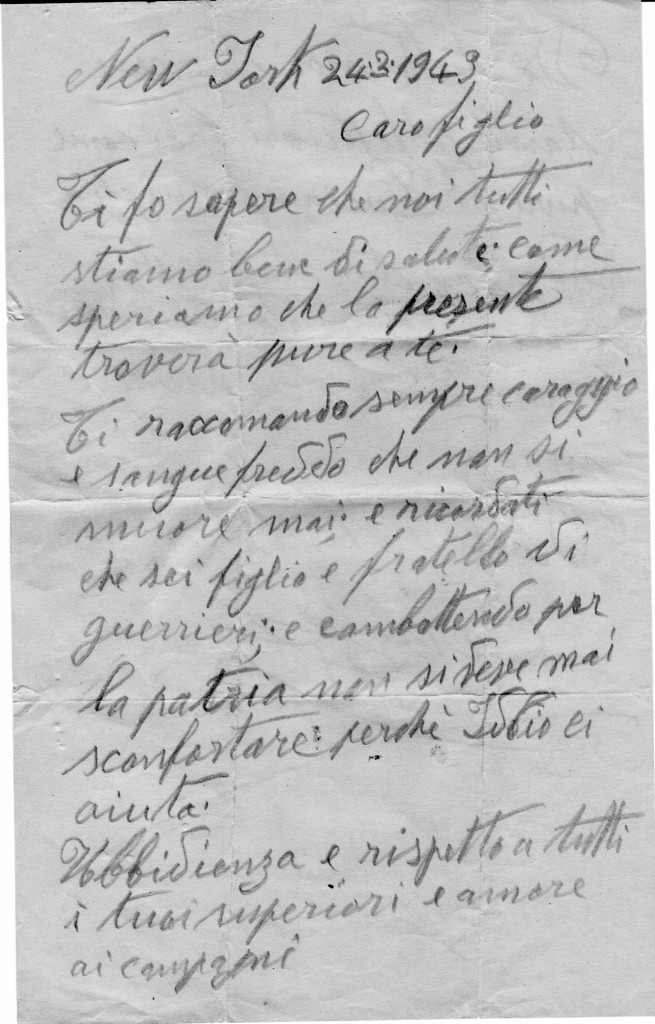 New York 24.3.1943
Caro figlio
Ti fo sapere che noi tutti
stiamo bene di salute: come
speriamo che la presente
troverà pure a te.
Ti raccomando sempre coraggio
e sangue freddo che non si
muore mai. e ricordati
che sei figlio e fratello di
guerrieri; e combattendo per
la patria non si deve mai
sconfortare: perchè Iddio ci
aiuta.
Ubbidienza e rispetto a tutti
i tuoi superiori e amore
ai compagni